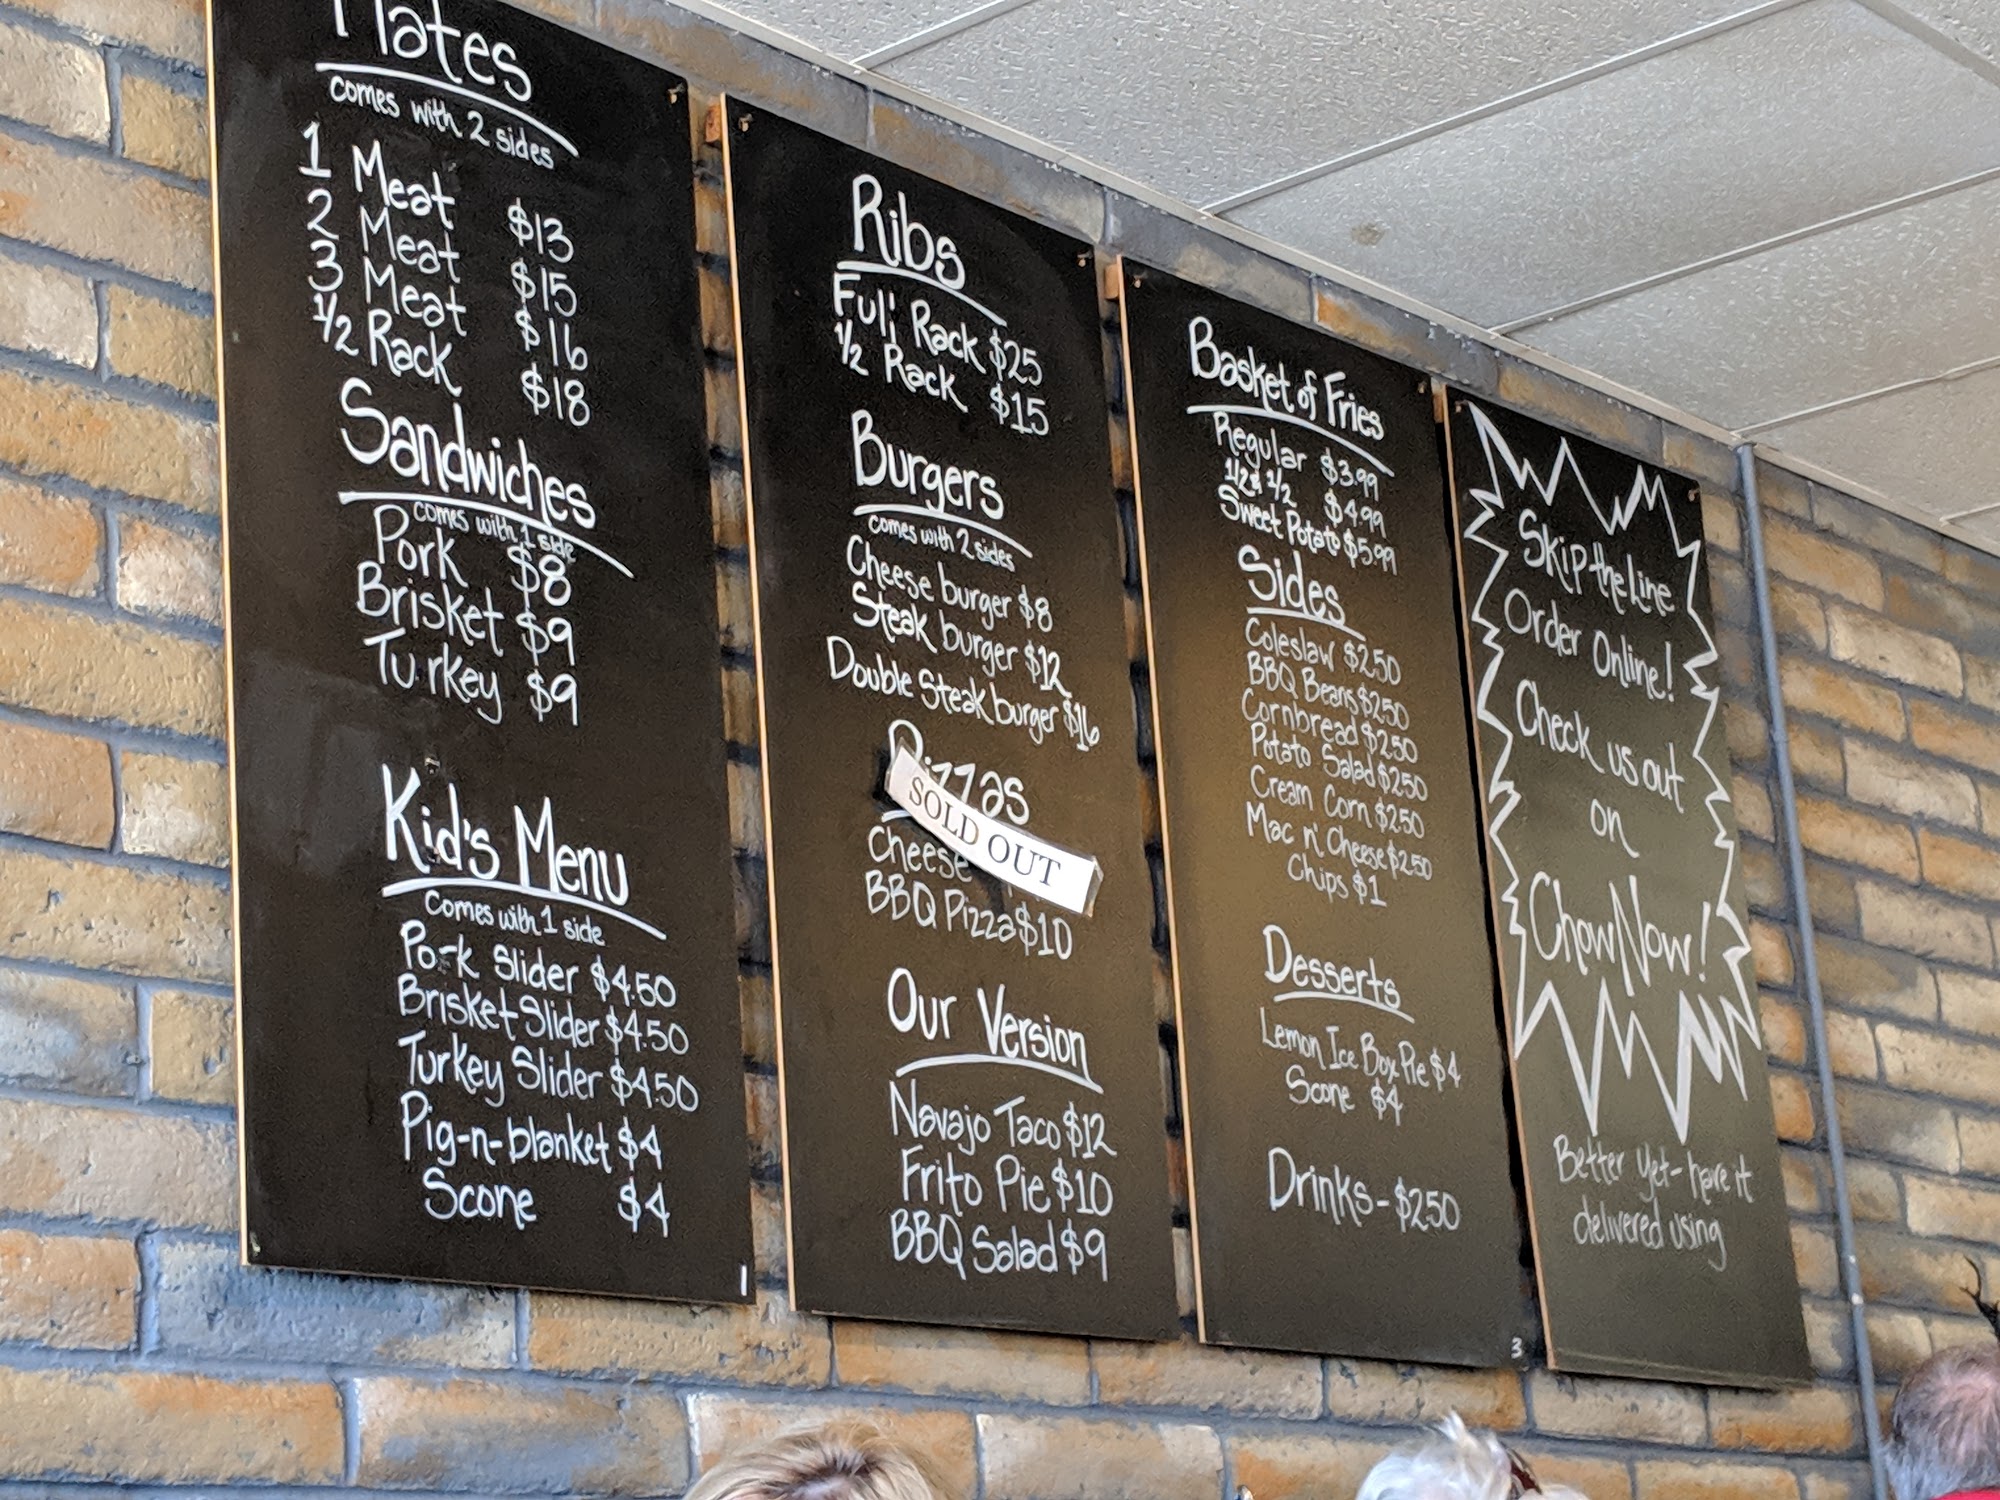 Plates
comes with 2 sides
1 Meat $13
2 Meat $15
3 Meat $16
1/2 Rack $18
Sandwiches
comes with 1 side
Pork $8
Brisket $9
Turkey $9
Kid's Menu
Comes with 1 side
Pork Slider $4.50
Brisket Slider $4.50
Turkey Slider $4.50
Pig-n-blanket $4
Scone $4
1
Ribs
Full Rack $25
1/2 Rack $15
Burgers
comes with 2 sides
Cheese burger $8
Steak burger $12
Double Steak burger $16
Pizzas
SOLD OUT
Cheese
BBQ Pizza $10
Our Version
Navajo Taco $12
Frito Pie $10
BBQ Salad $9
Basket of Fries
Regular $3.99
1/2 & 1/2 $4.99
Sweet Potato $5.99
Sides
Coleslaw $250
BBQ Beans $250
Cornbread $250
Potato Salad $250
Cream Corn $250
Mac n' Cheese $250
Chips $1
Desserts
Lemon Ice Box Pie $4
Scone $4
Drinks - $250
3
Skip the Line
Order Online!
Check us out
on
ChowNow!
Better yet - have it
delivered using